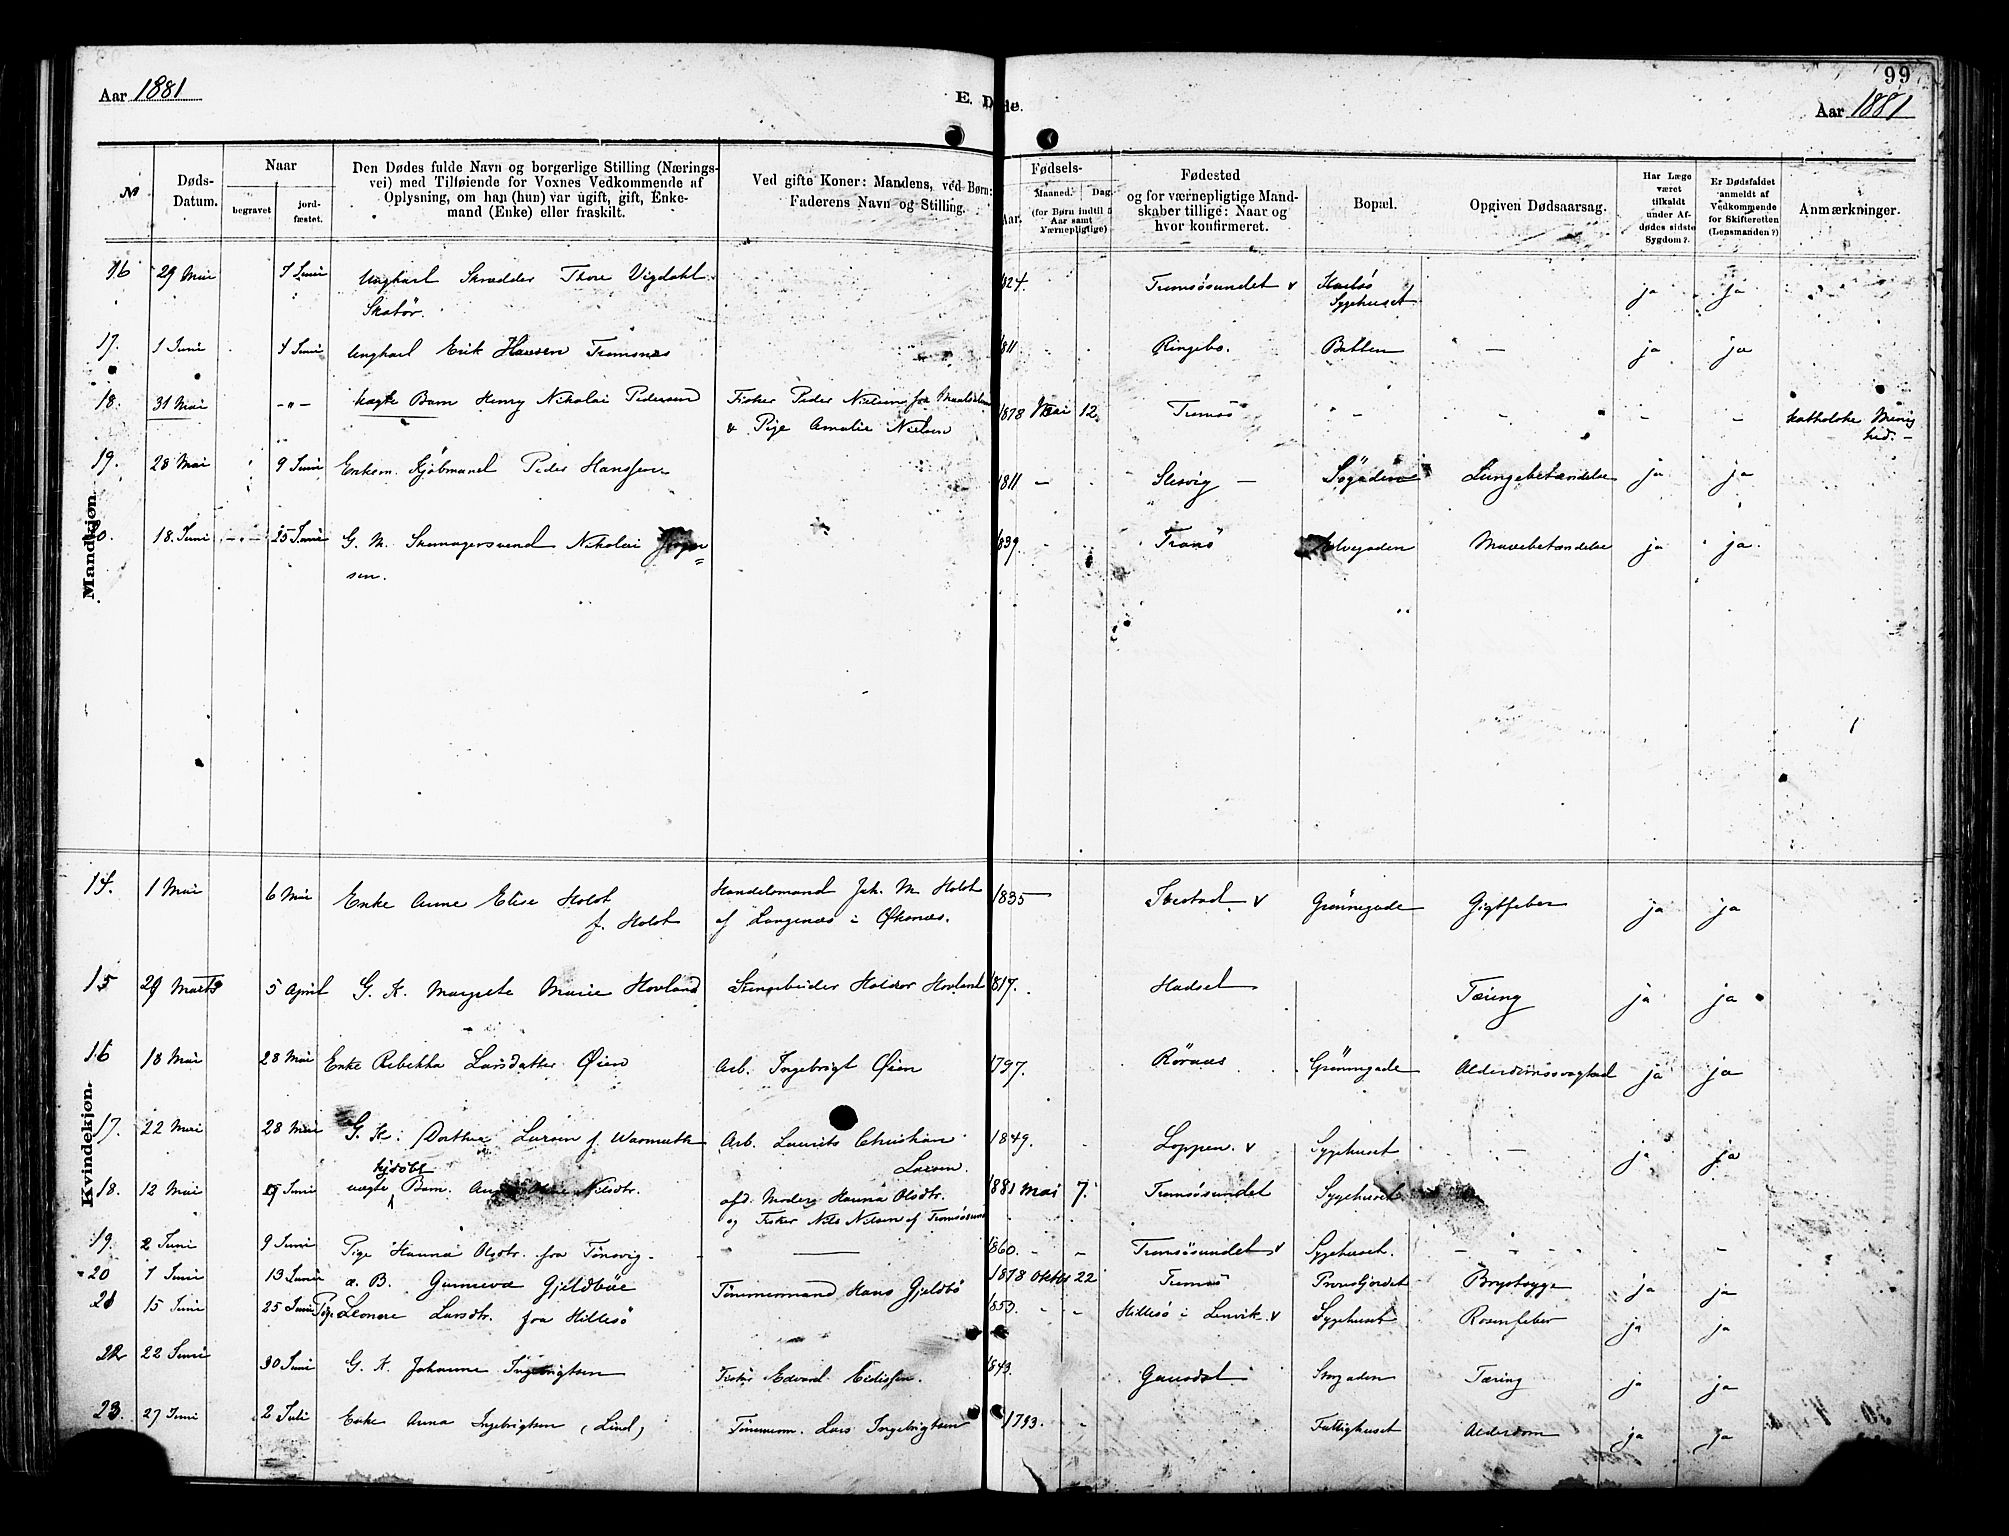 99
Aar 1881
E. Døde.
Aar 1881
Mandkjøn
Kvindekjøn.
№
Døds-Datum.
Naar
begravet
jordfæstet.
Den Dødes fulde Navn og borgerlige Stilling (Nærings-
vei) med Tilføiende for Voxnes Vedkommende af
Oplysning, om han (hun) var ugift, gift, Enke-
mand (Enke) eller fraskilt.
Ved gifte Koner: Mandens, ved Børn:
Faderens Navn og Stilling.
Fødsels-
Aar. Maaned. Dag.
(for Børn indtil 5
Aar samt
Værnepligtige)
Fødested
og for værnepligtige Mand-
skaber tillige: Naar og
hvor konfirmeret.
Bopæl.
Opgiven Dødsaarsag.
Har Læge
været
tilkaldt
under Af-
dødes sidste
Sygdom?
Er Dødsfaldet
anmeldt af
Vedkommende
for Skifteretten
(Lensmanden?)
Anmærkninger.
16 29 Mai 7 Juni Ungkarl Skrædder Thore Vigdahl 1824. Tromsösundet v Sygehuset ja ja
17. 1 Juni 7 Juni Ungkarl Erik Hansen Tromsnes 1811 Ringebo. Bakken — ja ja
18. 31 Mai -"- uægte Barn Henry Nikolai Pedersen Fisker Peder Nielsen fra 1878 Mai 12 Tromsö - - - - katholske
& Pige Amalie Nielsen
19. 28 Mai 9 Juni Enkem. Kjöbmand Peder Hanssen 1811 — Slesvig — Sögaden Lungebetændelse ja ja
18. Juni 25 Juni G. M. Skomagersvend Nikolai Jörgen=
sen. 1839. Tranö Mavebetændelse ja ja
14. 1 Mai 6 Mai Enke Anne Elise Holst Handelsmand Joh. M. Holst 1835 — Ibestad v Grönnegade Gigtfeber ja ja
f. Holst af Langenæs i Øksnæs.
15 29 Marts 5 April G. K. Margrete Marie Hovland Holdor Hovland 1817. Hadsel Tæring ja ja
16 18 Mai 28 Mai Enke Rebekka Larsdatter Øien Arb. Ingebrigt Øien 1797. Röraas Grönnegade Alderdomssvaghed ja ja
17. 22 Mai 28 Mai G. K. Dorthea Larsen f. Warmuth Arb. Laurits Christian
Larsen. 1849. Loppen. v Sygehuset - ja ja
18. 12 Mai 9 Juni uægte Barn. Nilsdtr. afd. Moder Hanna Olsdtr. 1881 Mai 7. Tromsösundet Sygehuset
og Fisker Nils Nilsen af Tromsösund
19. 2 Juni 9 Juni Pige Hanna Olsdtr. fra Tönsvig. — 1860. - - Tromsösundet v Sygehuset. - - - -
20 7 Juni 13 Juni æ. B. Gunneva Gjeldböe Tömmermand Hans Gjeldbö 1878 Oktbr 22 Tromsö Brystsyge ja ja
21 15 Juni 25 Juni Pige Leonore Larsdtr. fra Hillesö 1853. - - Hillesö i Lenvik. v Sygehuset Rosenfeber ja ja
22 22 Juni 30 Juni G. K. Johanne Ingebrigtsen Fisker Edvard Eidissen. 1843. Gausdal Storgaden Tæring ja ja
23. 27 Juni 2 Juli Enke Anna Ingebrigtsen (Lind) Tömmerm. Lars Ingebrigtsen 1793. Fattighuset Alderdom ja ja